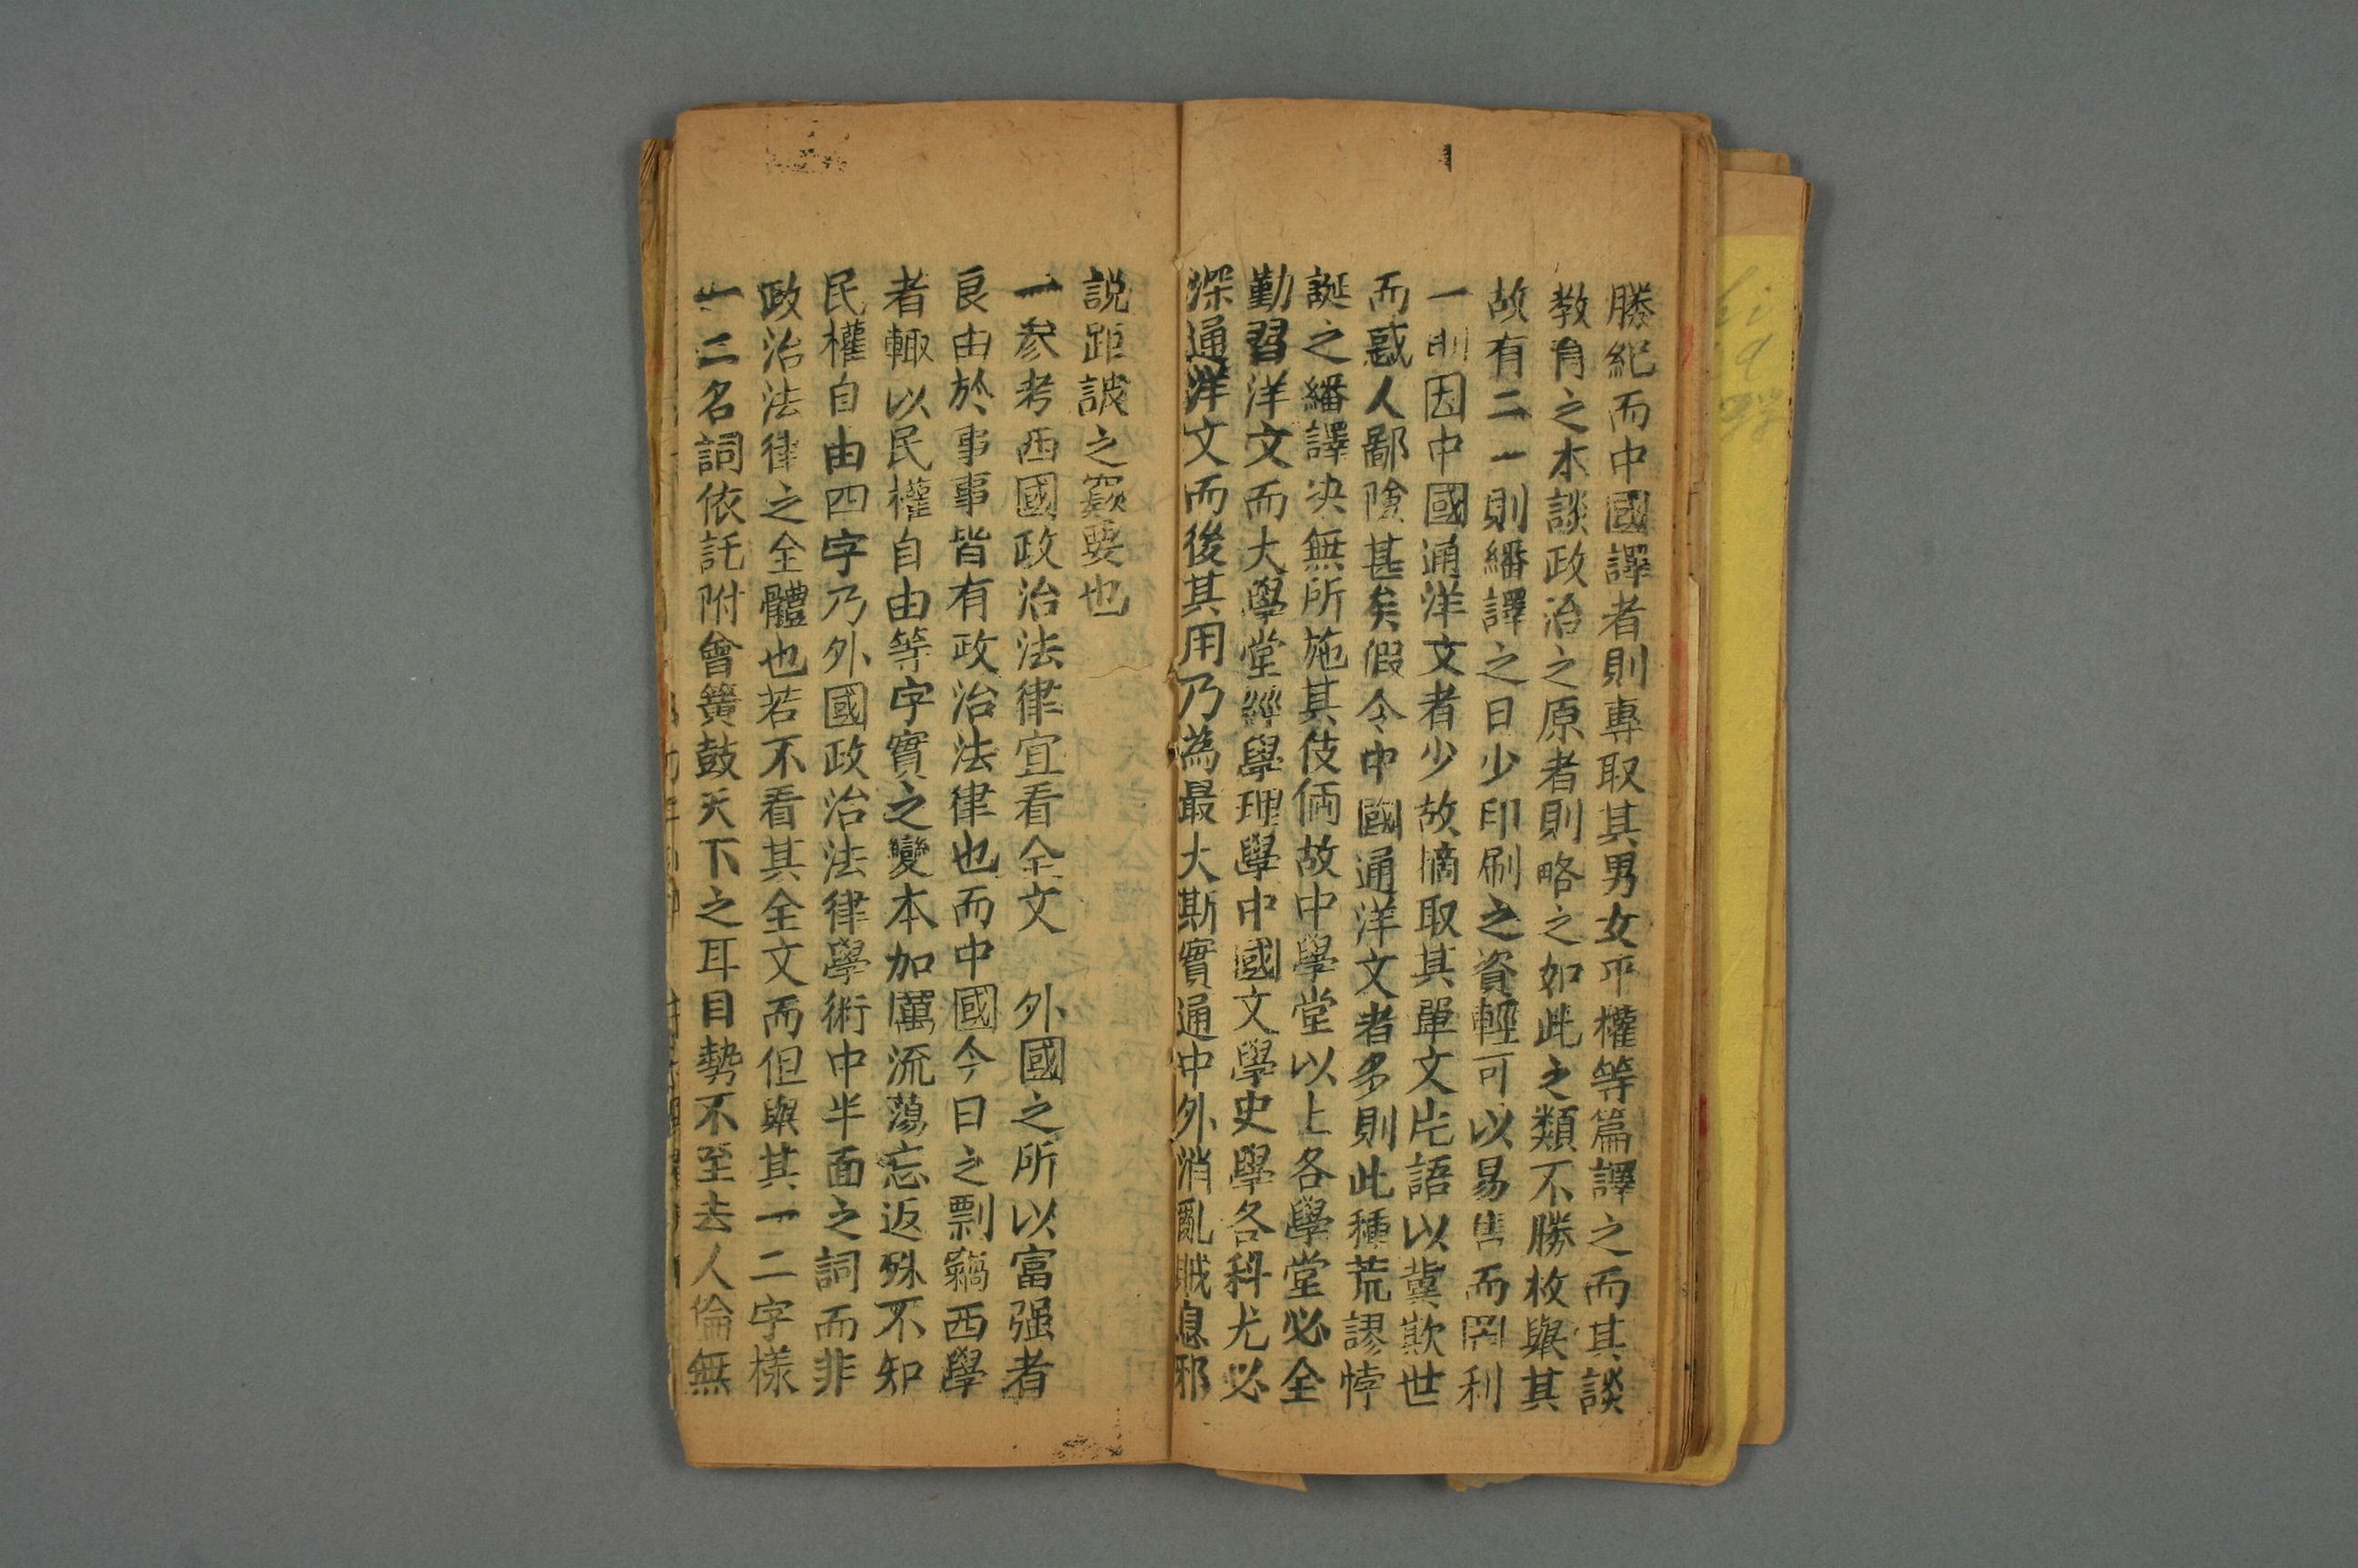 勝紀而中國譯者則專取其男女平權等篇譯之而其談
教育之本談政治之原者則略之如此之類不勝枚舉其
故有二一則繙譯之日少印刷之資輕可以易售而罔利
一則因中國通洋文者少故摘取其單文片語以冀欺世
而惑人鄙陰甚矣假令中國通洋文者多則此種荒謬悖
誕之繙譯決無所施其伎倆故中學堂以上各學堂必全
勤習洋文而大學堂經學理學中國文學史學各科尤必
深通洋文而後其用乃為最大斯實通中外消亂賊息邪
說距詖之窾要也
一參考西國政治法律宜看全文　外國之所以富强者
良由於事事皆有政治法律也而中國今日之剽竊西學
者輙以民權自由等字實之變本加厲流蕩忘返殊不知
民權自由四字乃外國政治法律學術中半面之詞而非
政治法律之全體也若不看其全文而但舉其一二字樣
一二名詞依託附會簧鼓天下之耳目勢不至去人倫無